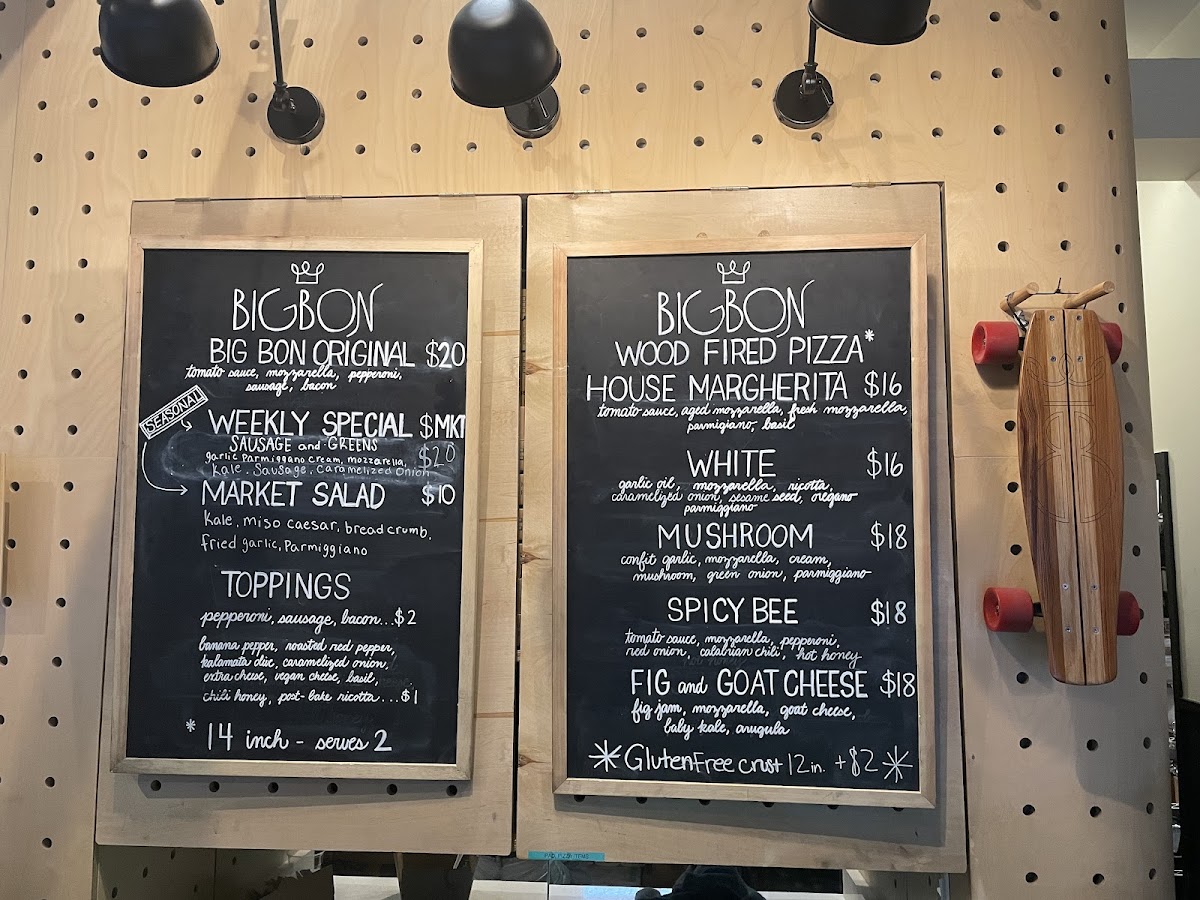 BIGBON
BIG BON ORIGINAL $20
tomato sauce, mozzarella, pepperoni,
sausage, bacon
SEASONAL
WEEKLY SPECIAL $MKT
SAUSAGE and GREENS
garlic Parmiggano cream, mozzarella, $20
kale. Sausage, Caramelized Onion
MARKET SALAD $10
Kale, miso caesar, bread crumb,
fried garlic, Parmiggiano
TOPPINGS
pepperoni, sausage, bacon...$2
banana pepper, roasted red pepper,
kalamata olive, caramelized onion,
extra cheese, vegan cheese, basil,
chili honey, post-bake ricotta...$1
*14 inch - serves 2
BIGBON
WOOD FIRED PIZZA*
HOUSE MARGHERITA $16
tomato sauce, aged mozzarella, fresh mozzarella,
parmigiano, basil
WHITE $16
garlic oil, mozzarella, ricotta,
caramelized onion, sesame seed, oregano
parmiggiano
MUSHROOM $18
confit garlic, mozzarella, cream,
mushroom, green onion, parmiggiano
SPICY BEE $18
tomato sauce, mozzarella, pepperoni,
red onion, calabrian chili, hot honey
FIG and GOAT CHEESE $18
fig jam, mozzarella, goat cheese,
baby kale, arugula
*GlutenFree crust 12in. +$2*